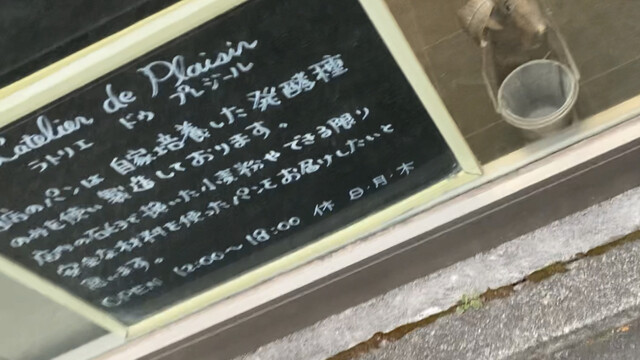 L'atelier de Plaisir
ラトリエ ドゥ プレジール
当店のパンは 自家培養した発酵種
のみを使い製造しております。
店内の石臼で挽いた小麦粉や できる限り
安全な材料を使ったパンを お届けしたいと
思います。
OPEN 12:00〜18:00 休 日・月・木